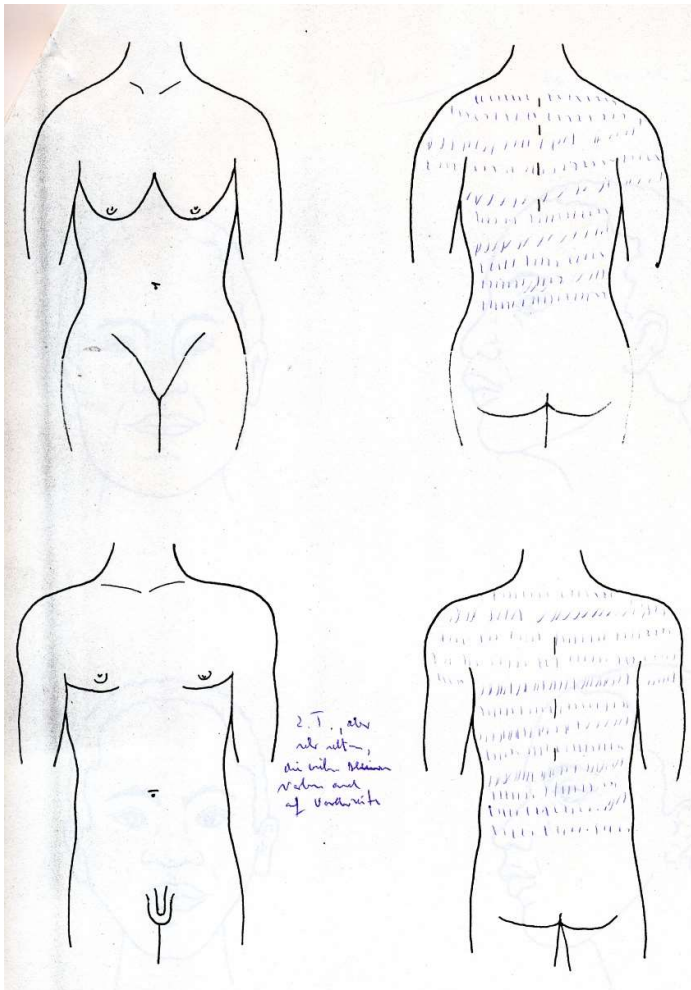 z.T., aber
sehr selten,
die vielen kleinen
Narben auch
auf Vorderseite